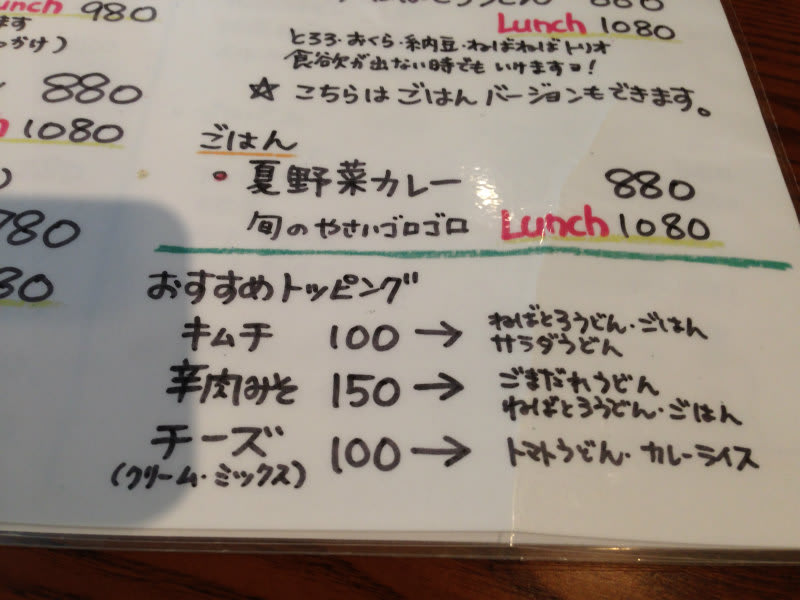 Lunch 980
ます
っかけ)
880
1080
780
30
880
Lunch 1080
とろろ・おくら・納豆・ねばねばトリオ
食欲が出ない時でもいけますヨ!
☆ こちらはごはんバージョンもできます。
ごはん
・夏野菜カレー 880
旬のやさいゴロゴロ Lunch 1080
おすすめトッピング
キムチ 100 → ねばとろうどん・ごはん
サラダうどん
辛肉みそ 150 → ごまだれうどん
ねばとろうどん・ごはん
チーズ 100 → トマトうどん・カレーライス
(クリーム・ミックス)